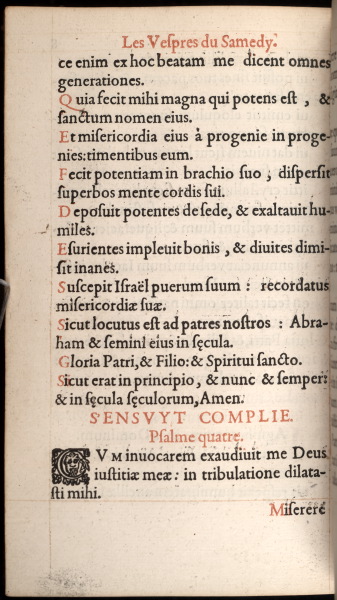 Les Vespres du Samedy.
ce enim ex hoc beatam me dicent omnes
generationes.
Quia fecit mihi magna qui potens est , &
sanctum nomen eius.
Et misericordia eius à progenie in proge-
nies: timentibus eum.
Fecit potentiam in brachio suo , dispersit
superbos mente cordis sui.
Deposuit potentes de sede, & exaltauit hu-
miles.
Esurientes impleuit bonis , & diuites dimi-
sit inanes.
Suscepit Israël puerum suum : recordatus
misericordiæ suæ.
Sicut locutus est ad patres nostros : Abra-
ham & semini eius in sęcula.
Gloria Patri, & Filio: & Spiritui sancto.
Sicut erat in principio , & nunc & semper:
& in sęcula sęculorum, Amen.
S'ENSVYT COMPLIE.
Psalme quatre.
CVM inuocarem exaudiuit me Deus
iustitiæ meæ : in tribulatione dilata-
sti mihi.
Miserere